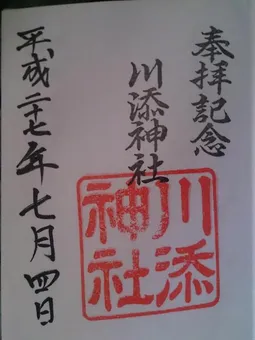 奉拝記念
川添神社
川添
神社
平成二十七年七月四日